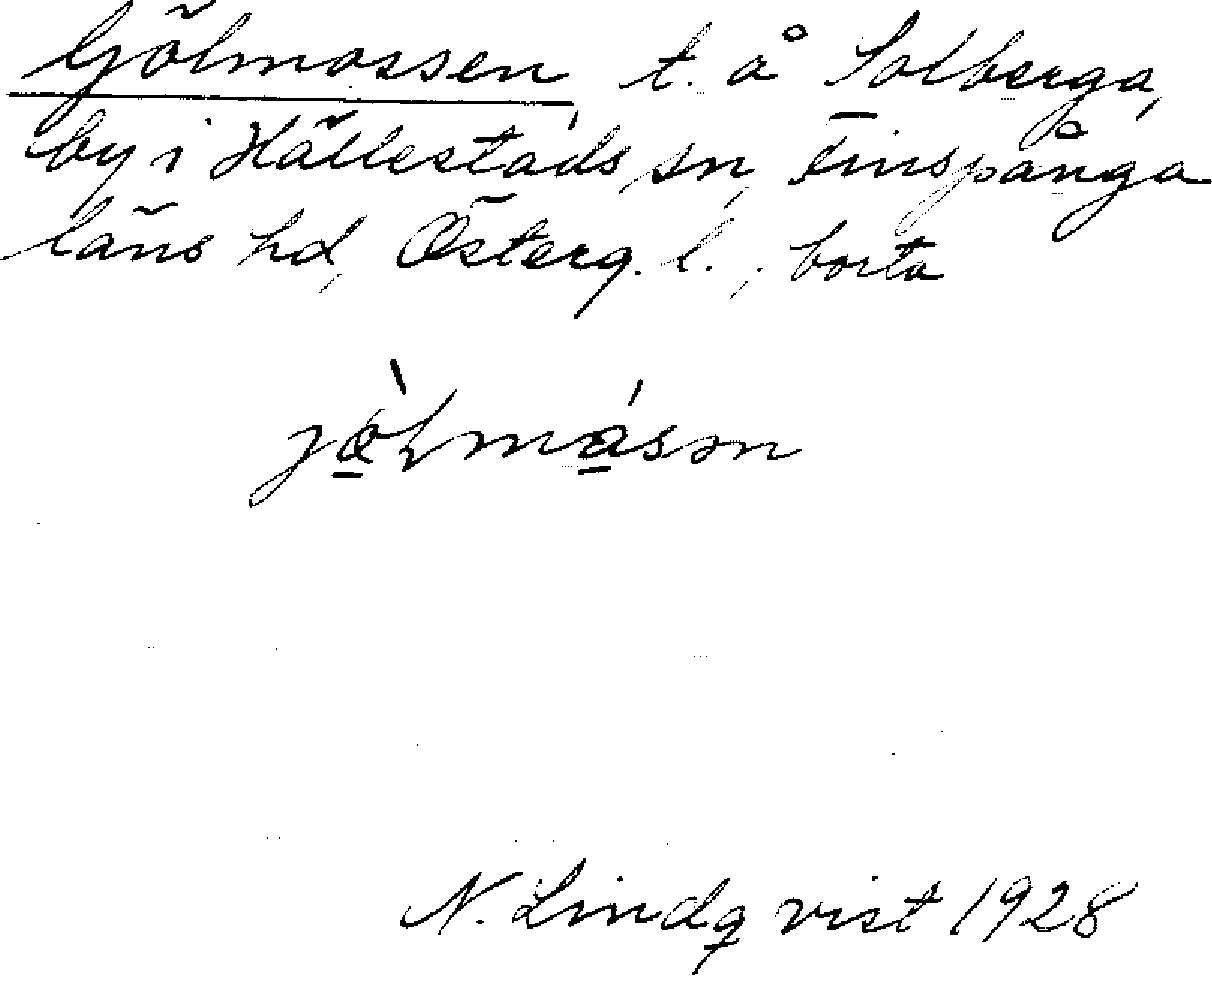 Gölmossen, t. å Solberga,
by i Hällestads sn, Finspånga
läns hd, Österg. l.; borta
N. Lindqvist 1928